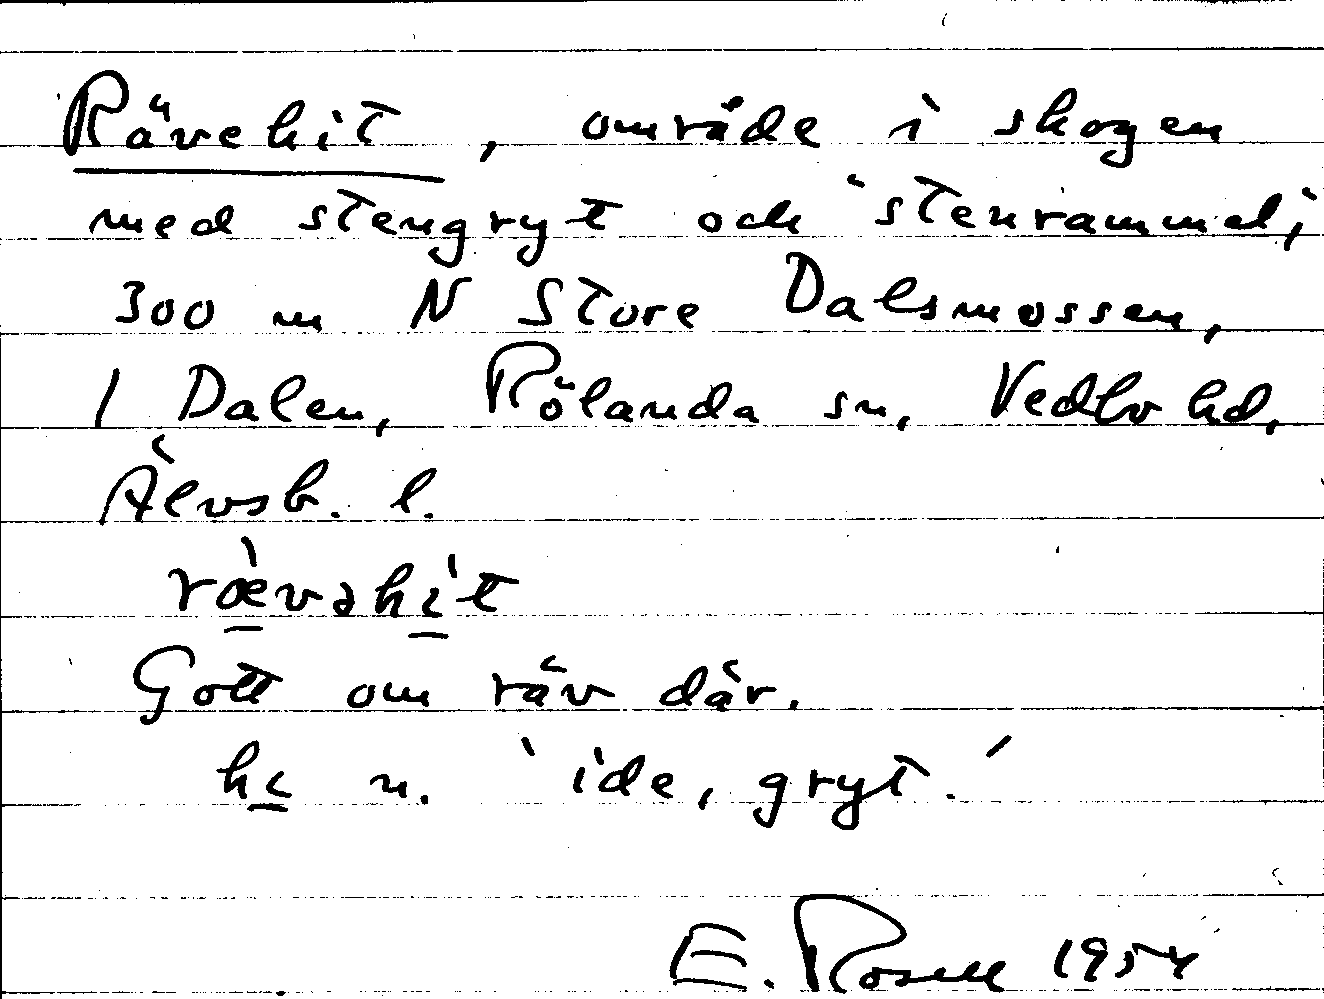 Rävehit, område i skogen
med stengryt och 'stenrammel;
300 m N Store Dalsmossen,
1 Dalen, Rölanda sn, Vedbo hd,
Älvsb. l.
ræ̀vəhi̱t
Gott om räv där.
hi̱ n. 'ide, gryt.'
E. Rosell 1954